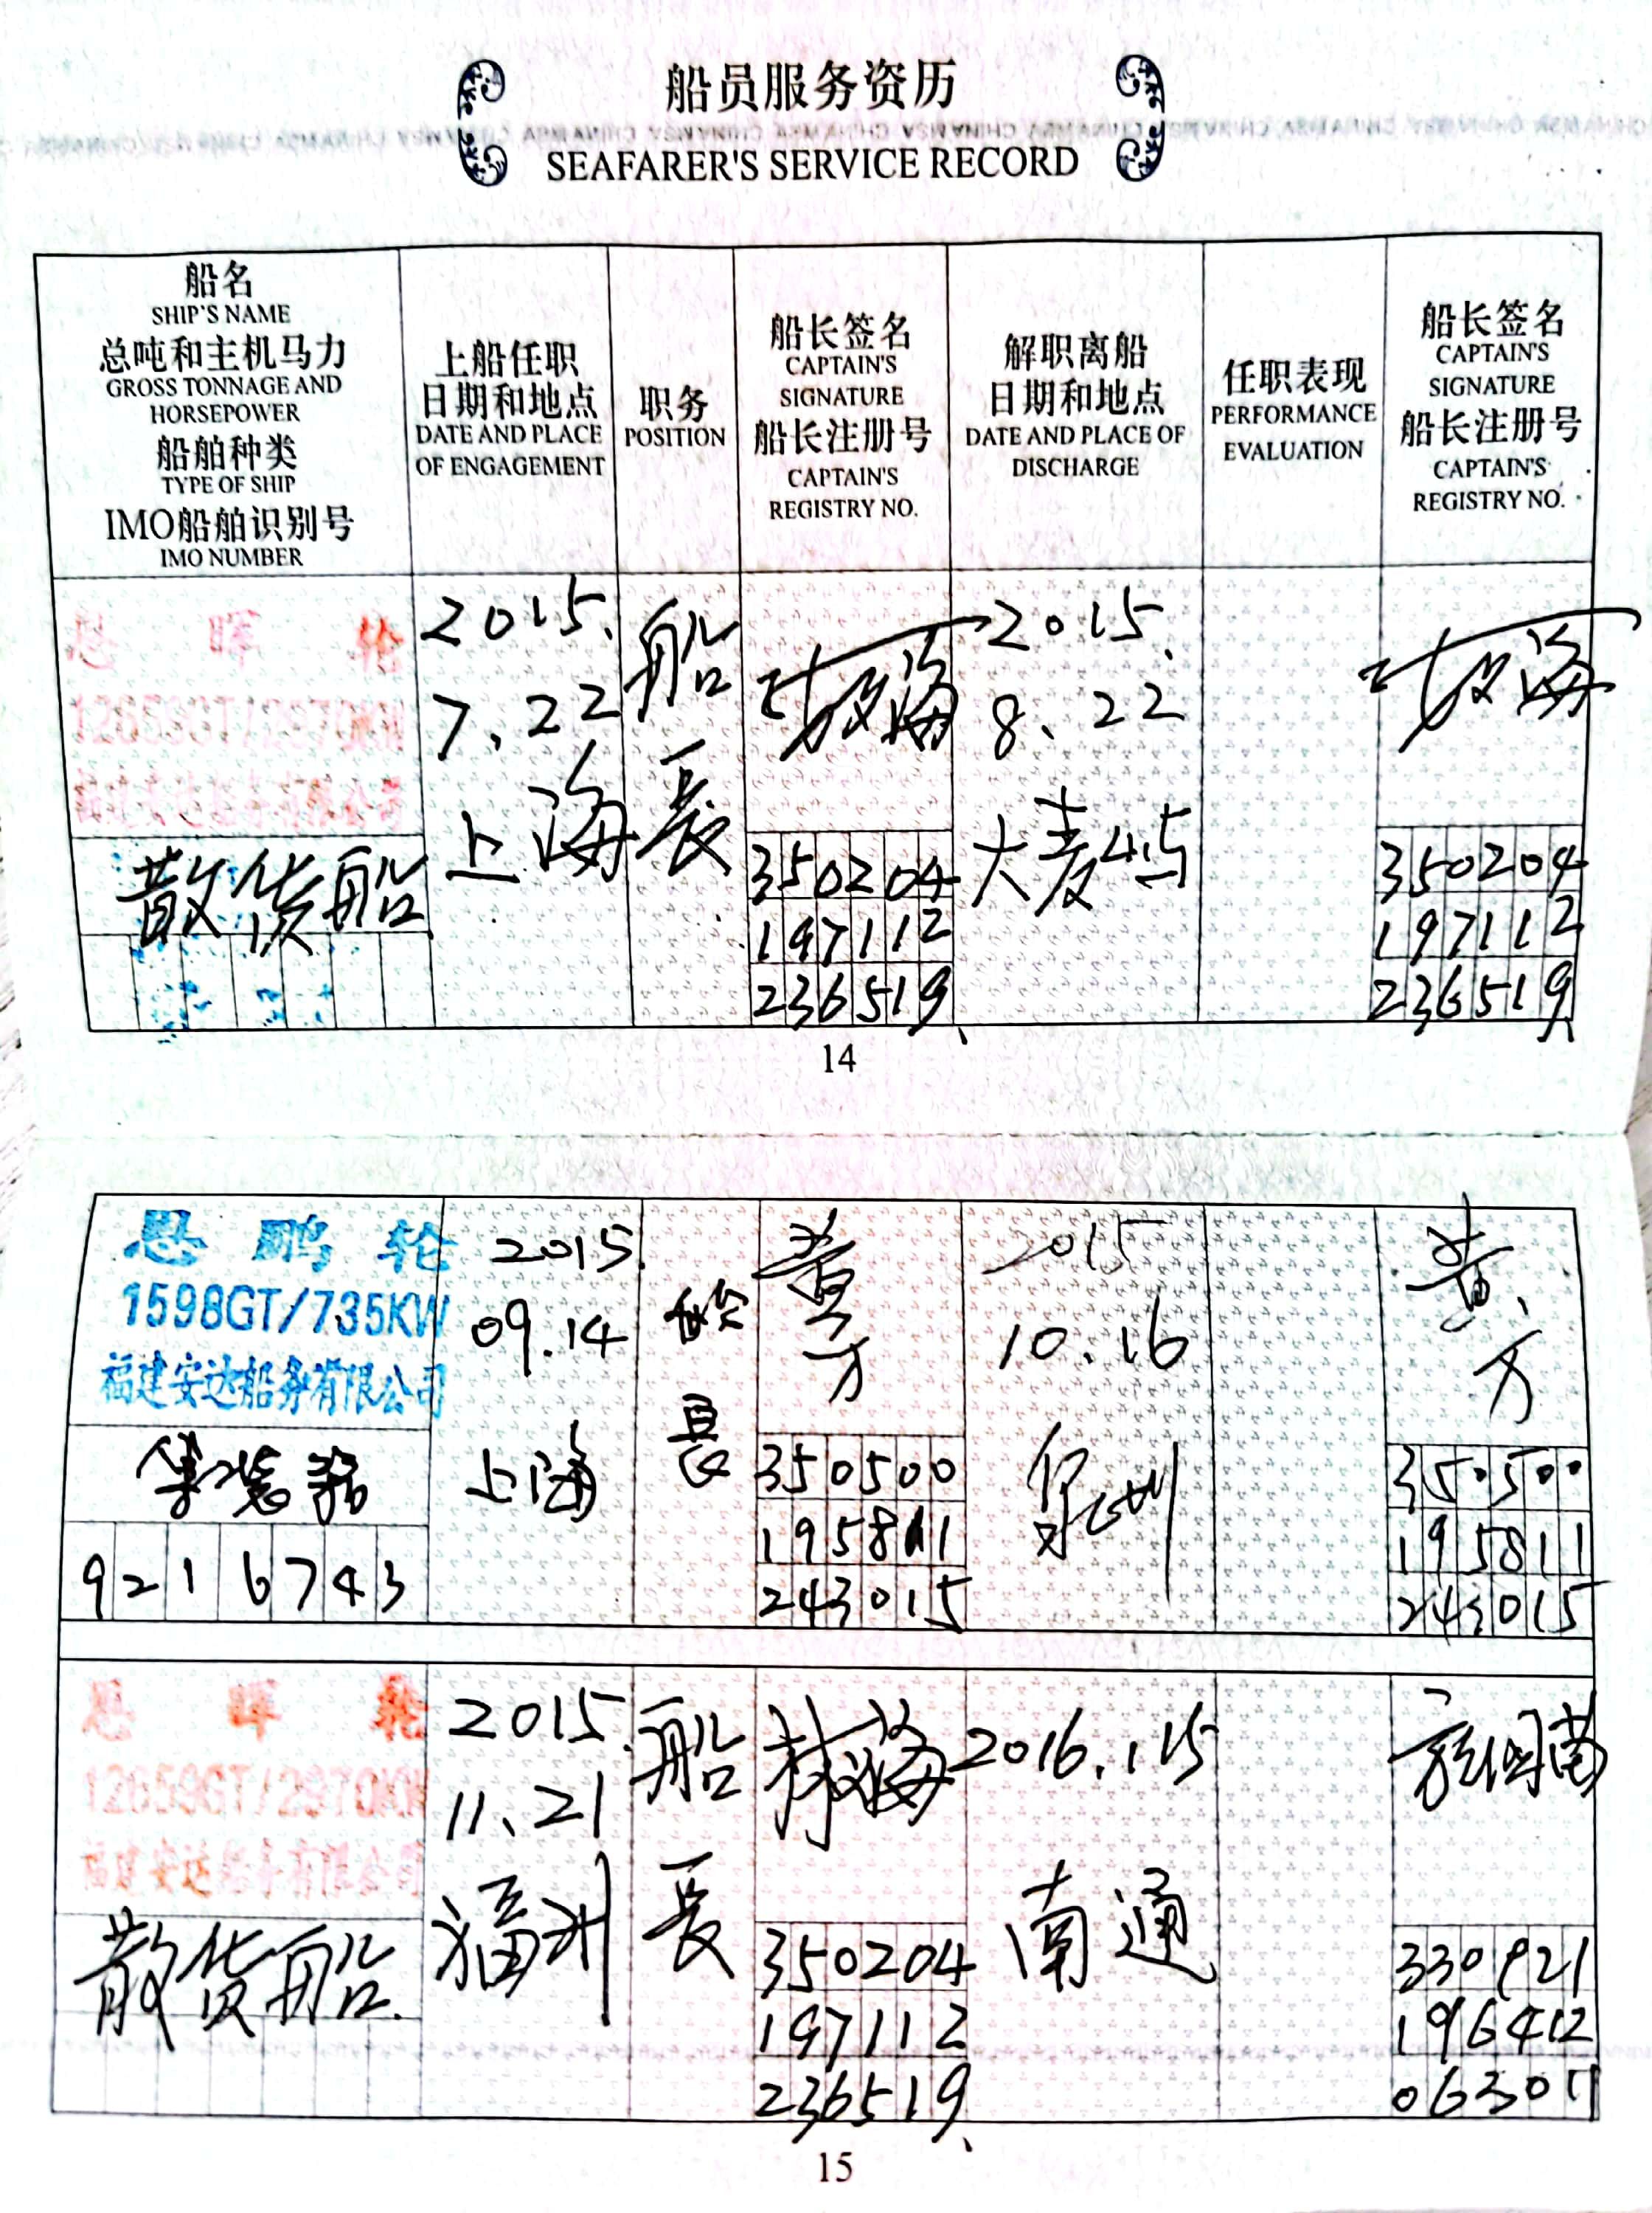 船员服务资历
SEAFARER'S SERVICE RECORD
船名
SHIP'S NAME
总吨和主机马力
GROSS TONNAGE AND
HORSEPOWER
船舶种类
TYPE OF SHIP
IMO船舶识别号
IMO NUMBER
上船任职
日期和地点
DATE AND PLACE
OF ENGAGEMENT
职务
POSITION
船长签名
CAPTAIN'S
SIGNATURE
船长注册号
CAPTAIN'S
REGISTRY NO.
解职离船
日期和地点
DATE AND PLACE OF
DISCHARGE
任职表现
PERFORMANCE
EVALUATION
船长签名
CAPTAIN'S
SIGNATURE
船长注册号
CAPTAIN'S
REGISTRY NO.
晖 轮
散货船
2015.
7.22
上海
船
长
350204
197112
236519
2015.
8.22
大麦屿
350204
197112
236519
14
恩 鹏 轮
1598GT/735KW
福建安达船务有限公司
集装箱
9216743
2015.
09.14
上海
船
长
黄
万
350500
195811
243015
2015
10.16
泉州
黄
万
350500
195811
243015
晖 轮
散货船
2015.
11.21
福州
船
长
350204
197112
236519
2016.1.15
南通
330921
196412
15